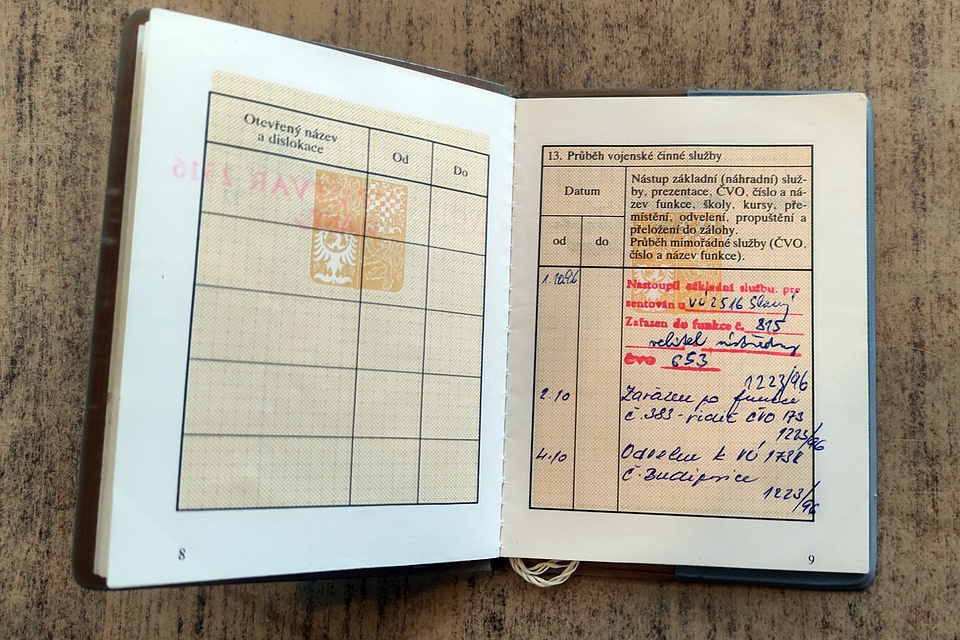 Otevřený název
a dislokace
Od
Do
8
13. Průběh vojenské činné služby
Datum
od
do
Nástup základní (náhradní) služ-
by, prezentace, ČVO, číslo a ná-
zev funkce, školy, kursy, pře-
místění, odvelení, propuštění a
přeložení do zálohy.
Průběh mimořádné služby (ČVO,
číslo a název funkce).
1.10.96
Nastoupil základní službu, pre
sentován u VÚ 2516 Slaný
Zařazen do funkce č. 815
velitel ústředny
ČVO 653
1223/96
2.10
Zařazen po funkce
č. 383 - řidič ČVO 173
1223/96
4.10
Odvelen k VÚ
č. Budějovice
1223/96
9